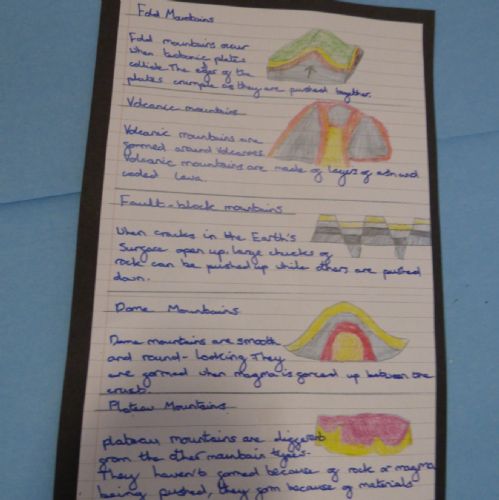 Fold Mountains
Fold mountains occur
when tectonic plates
collide. The edges of the
plates crumple as they are pushed together.
Volcanic mountains
Volcanic mountains are
formed around volcanoes.
Volcanic mountains are made of layers of ash and
cooled lava.
Fault-block mountains
When cracks in the Earth's
Surface open up, large chucks of
rock can be pushed up while others are pushed
down.
Dome Mountains
Dome mountains are smooth
and round-looking. They
are formed when magma is forced up between the
crust.
Plateau Mountains
plateau mountains are different
from the other mountain types.
They haven't formed because of rock or magma
being pushed, they form because of materials